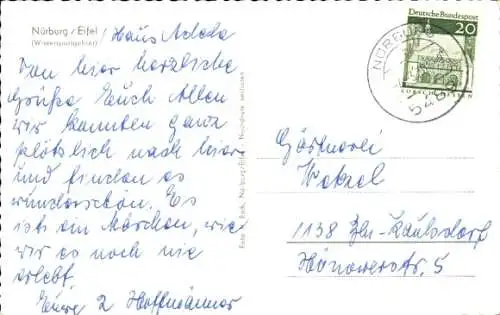 Nürburg / Eifel / Haus Adele
(Wintersportgebiet)
Von hier herzliche
Grüße Euch Allen
wir kamen ganz
plötzlich nach hier
und finden es
wunderschön. Es
ist ein Märchen, wie
wir es noch nie
erlebt.
Eure 2 Hoffmänner
Nürburg/Eifel
Deutsche Bundespost
20
NÜRBURG
5489
Gärtnerei
Wetzel
1138 Bln-Kaulsdorf
Hönowerstr. 5